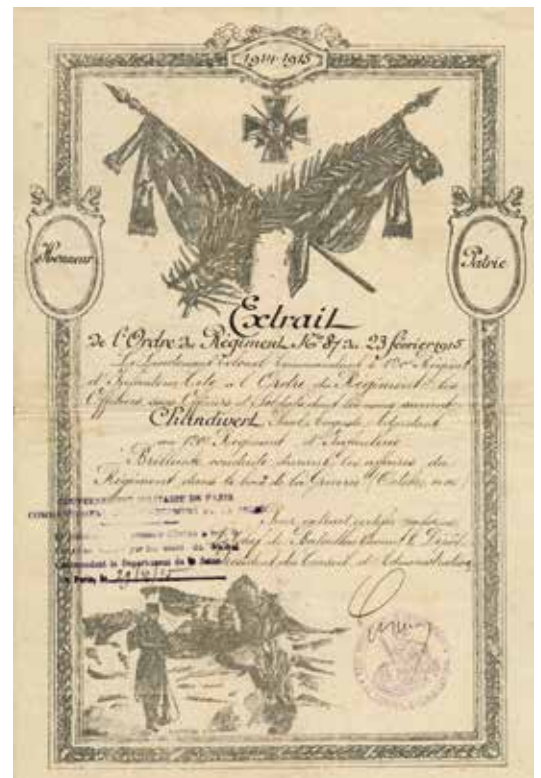 1914-1915
Honneur
Patrie
Extrait
de l'Ordre du Régiment No 87 du 23 février 1915
Le Lieutenant Colonel Commandant le 120e Régiment
d'Infanterie Cite à l'Ordre du Régiment les
Officiers, sous Officiers et Soldats dont les noms suivent
Chandivert, Paul Auguste, Adjudant
au 120e Régiment d'Infanterie
Brillante conduite durant les affaires du
Régiment dans le bois de la Gruerie (Octobre
Pour extrait certifié conforme
GOUVERNEMENT MILITAIRE DE PARIS
Le Chef de Bataillon Comdt le Dépôt
Président du Conseil d'Administration
Commandant le Département de la Seine
Paris, le